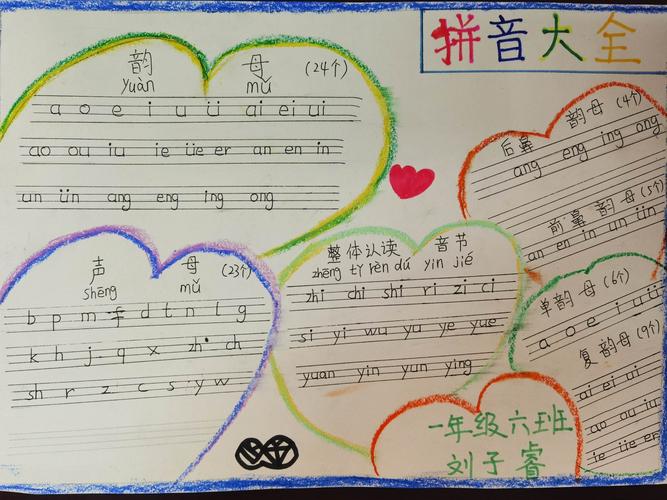 拼音大全
韵 母 (24个)
yuàn mǔ
a o e i u ü ai ei ui
ao ou iu ie üe er an en in
un ün ang eng ing ong
后鼻 韵母 (4个)
ang eng ing ong
前鼻 韵母 (5个)
an en in un ün
声 母 (23个)
shēng mǔ
b p m f d t n l g
k h j q x zh ch
sh r z c s y w
整体认读 音节
zhěng tǐ rèn dú yīn jié
zhi chi shi ri zi ci
si yi wu yu ye yue
yuan yin yun ying
单韵母 (6个)
a o e i u ü
复韵母 (9个)
ai ei ui
ao ou iu
ie üe er
一年级六班
刘子睿